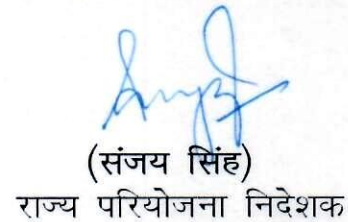 (संजय सिंह)
राज्य परियोजना निदेशक